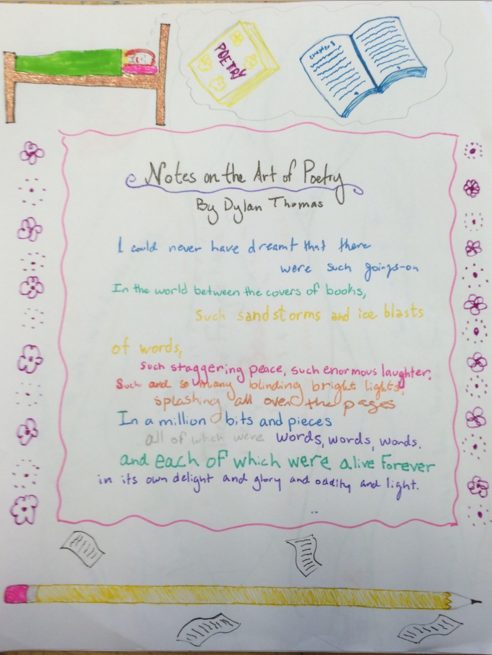 POETRY
chapter 1
Notes on the Art of Poetry
By Dylan Thomas
I could never have dreamt that there
were such goings-on
In the world between the covers of books,
Such sandstorms and ice blasts
of words,
Such staggering peace, such enormous laughter,
Such and so many blinding bright lights,
splashing all over the pages
In a million bits and pieces
all of which were words, words, words,
and each of which were alive forever
in its own delight and glory and oddity and light.